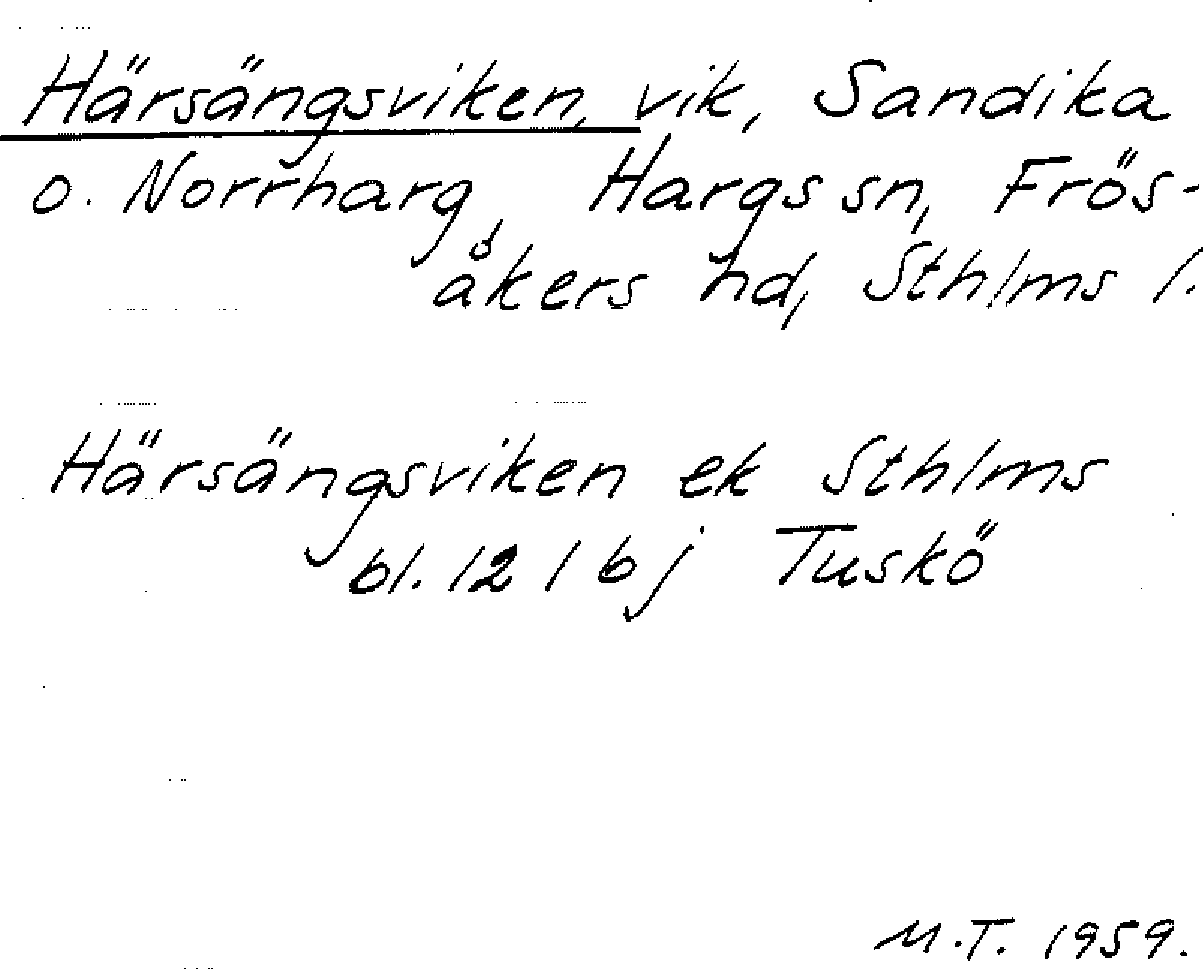 Härsängsviken, vik, Sandika
o. Norrharg, Hargs sn, Frös-
åkers hd, Sthlms l.
Härsängsviken ek Sthlms
bl. 12 1 bj Tuskö
M.T. 1959.